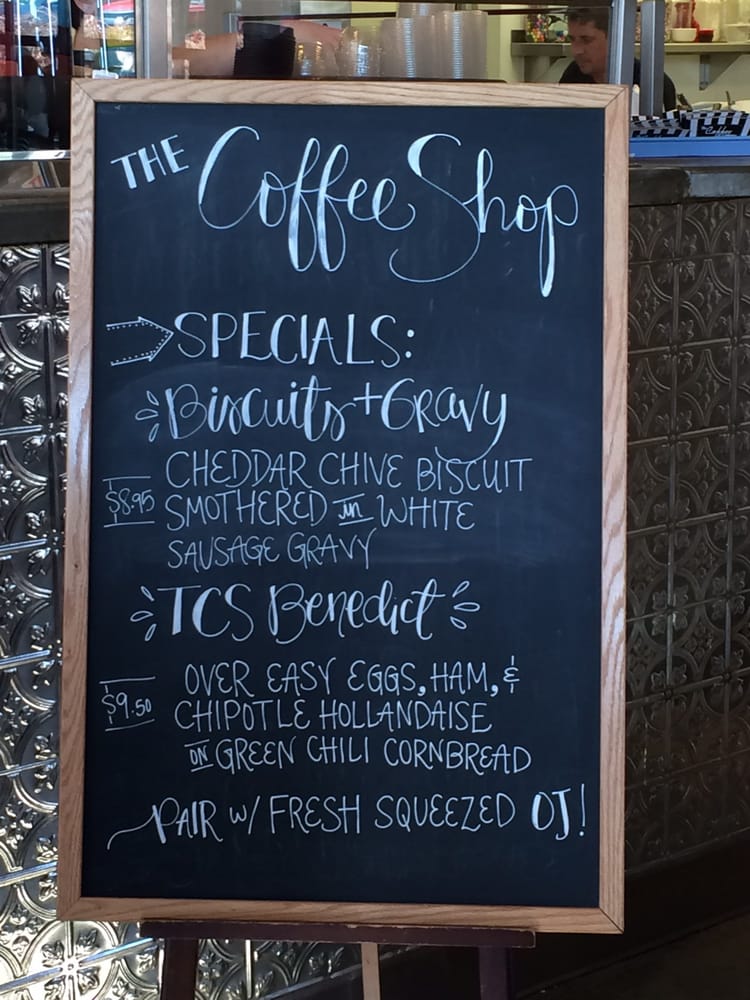 THE Coffee Shop
SPECIALS:
Biscuits + Gravy
CHEDDAR CHIVE BISCUIT
$8.95 SMOTHERED in WHITE
SAUSAGE GRAVY
TCS Benedict
OVER EASY EGGS, HAM, &
$9.50 CHIPOTLE HOLLANDAISE
ON GREEN CHILI CORNBREAD
PAIR W/ FRESH SQUEEZED OJ!